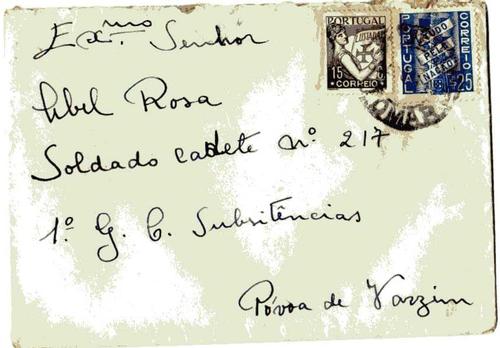 Exmo. Senhor
Abel Rosa
Soldado cadete nº 217
1º G. C. Subsitências
Póvoa de Varzim
PORTUGAL
LUSIADAS
15 C.
CORREIO
PORTUGAL
CORREIO
TUDO
PELA
NAÇÃO
$25
TOMAR